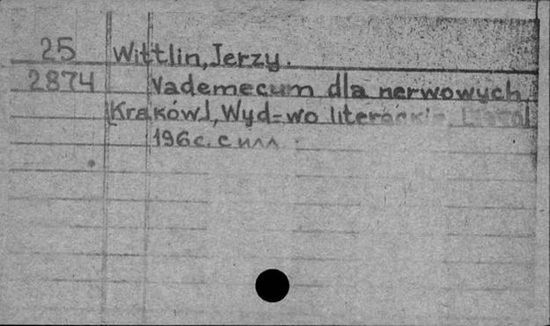 25 Wittlin, Jerzy.
2874 Vademecum dla nerwowych
[Kraków], Wyd-wo literackie,
196 с. с илл.